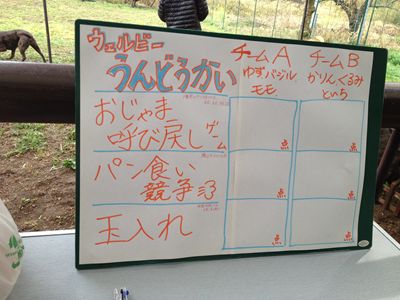 ウェルビー
うんどうかい
チームA
ゆず バジル
モモ
チームB
かりん くるみ
といち
おじゃま
呼び戻しゲーム
点
点
パン食い
競争
点
点
玉入れ
点
点